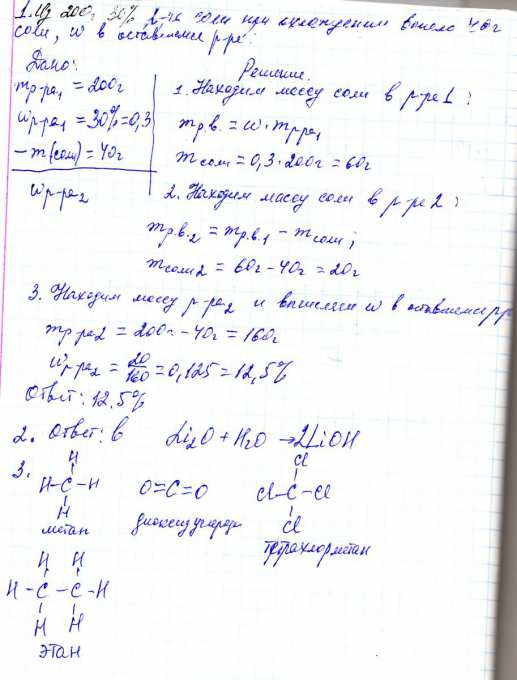 1. Из 200г 30% р-ра соли при охлаждении выпело 40г
соли, w в оставшемся р-ре:
Дано:
Решение.
mр-ра1 = 200г
wр-ра1 = 30% = 0,3
- m(соли) = 40г
wр-ра2
1. Находим массу соли в р-ре1:
mр.в. = w · mр-ра1
mсоли = 0,3 · 200г = 60г
2. Находим массу соли в р-ре2:
mр.в.2 = mр.в.1 - mсоли;
mсоли2 = 60г - 40г = 20г
3. Находим массу р-ра2 и вычисляем w в оставшемся р-ре
mр-ра2 = 200г - 40г = 160г
wр-ра2 = 20/160 = 0,125 = 12,5%
Ответ: 12,5%
2. Ответ: в Li2O + H2O → 2LiOH
3.
H
H-C-H
H
метан
O=C=O
диоксид углерода
Cl
Cl-C-Cl
Cl
тетрахлорметан
H H
H-C-C-H
H H
этан